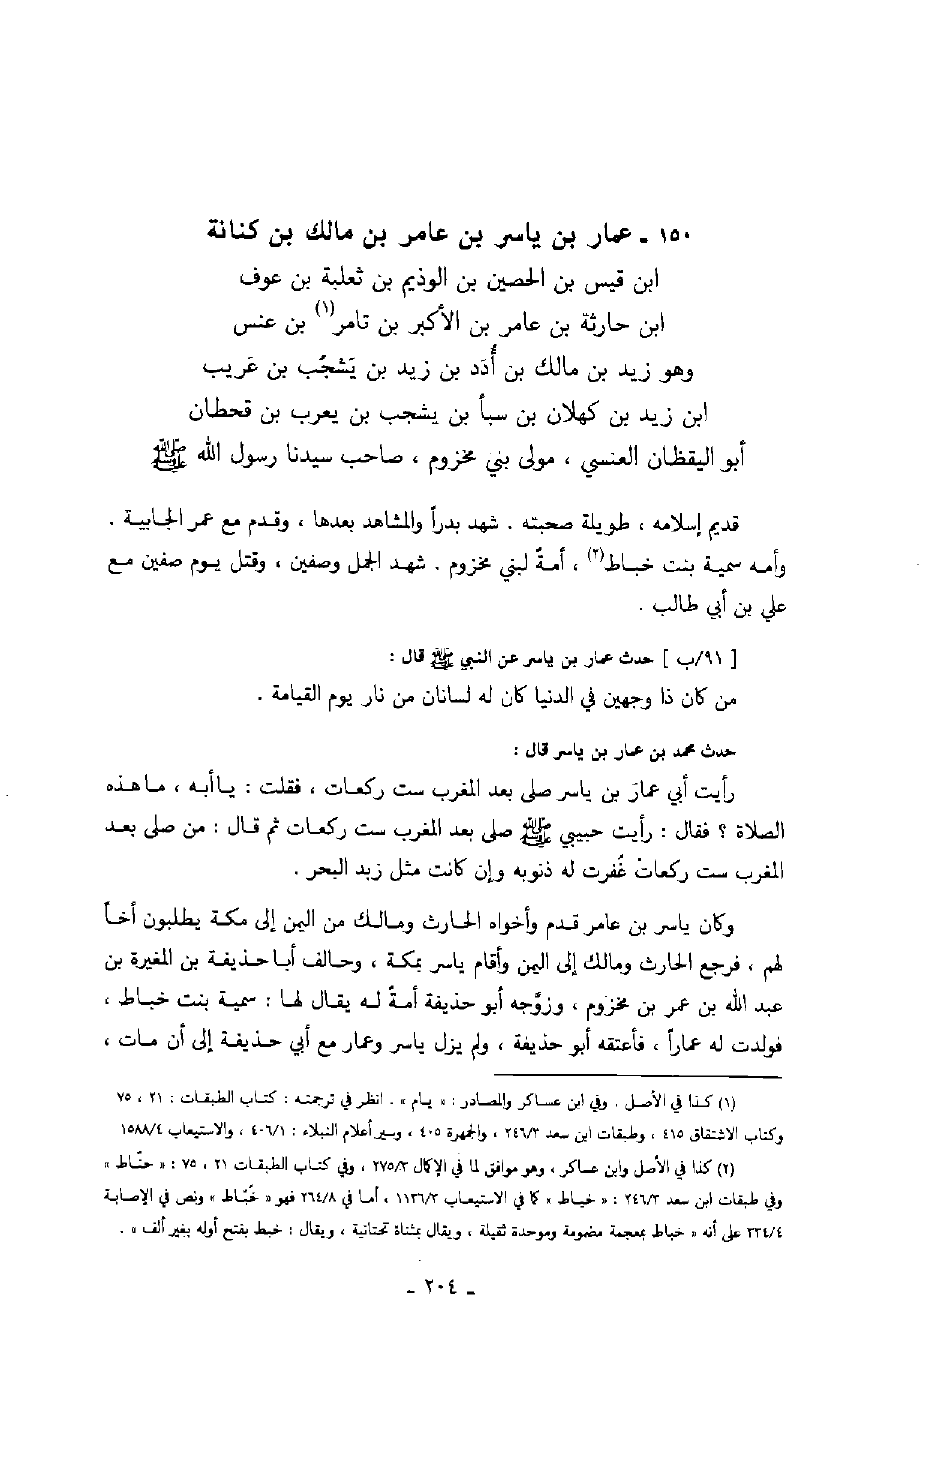 ١٥٠ ـ عمار بن ياسر بن عامر بن مالك بن كنانة
ابن قيس بن الحصين بن الوذيم بن ثعلبة بن عوف
ابن حارثة بن عامر بن الأكبر بن تامر(١) بن عنس
وهو زيد بن مالك بن أُدَد بن زيد بن يَشجُب بن غَريب
ابن زيد بن كهلان بن سبأ بن يشجب بن يعرب بن قحطان
أبو اليقظان العنسي ، مولى بني مخزوم ، صاحب سيدنا رسول الله ﷺ
قديم إسلامه ، طويلة صحبته . شهد بدراً والمشاهد بعدها ، وقدم مع عمر الجابية .
وأمه سمية بنت خباط(٢) ، أمةٌ لبني مخزوم . شهد الجمل وصفين ، وقتل يوم صفين مع
علي بن أبي طالب .
[ ٩١/ب ] حدث عمار بن ياسر عن النبي ﷺ قال :
من كان ذا وجهين في الدنيا كان له لسانان من نار يوم القيامة .
حدث محمد بن عمار بن ياسر قال :
رأيت أبي عمارَ بن ياسر صلى بعد المغرب ست ركعات ، فقلت : ياأبه ، ماهذه
الصلاة ؟ فقال : رأيت حبيبي ﷺ صلى بعد المغرب ست ركعات ثم قال : من صلى بعد
المغرب ست ركعات غُفرت له ذنوبه وإن كانت مثل زبد البحر .
وكان ياسر بن عامر قدم وأخواه الحارث ومالك من اليمن إلى مكة يطلبون أخاً
لهم ، فرجع الحارث ومالك إلى اليمن وأقام ياسر بمكة ، وحالف أباحذيفة بن المغيرة بن
عبد الله بن عمر بن مخزوم ، وزوَّجه أبو حذيفة أمةً له يقال لها : سمية بنت خباط ،
فولدت له عماراً ، فأعتقه أبو حذيفة ، ولم يزل ياسر وعمار مع أبي حذيفة إلى أن مات ،
(١) كذا في الأصل . وفي ابن عساكر والمصادر : « يام » . انظر في ترجمته : كتاب الطبقات : ٢١ ، ٧٥
وكتاب الاشتقاق ٤١٥ ، وطبقات ابن سعد ٢٤٦/٣ ، والجمهرة ٤٠٥ ، وسير أعلام النبلاء : ٤٠٦/١ ، والاستيعاب ١٥٨٨/٤
(٢) كذا في الأصل وابن عساكر ، وهو موافق لما في الإكمال ٢٧٥/٣ ، وفي كتاب الطبقات ٢١ ، ٧٥ : « حنّاط »
وفي طبقات ابن سعد ٢٤٦/٣ : « خياط » كما في الاستيعاب ١١٣٦/٣ ، أما في ٢٦٤/٨ فهو « خُبّاط » ونص في الإصابة
٣٣٤/٤ على أنه « خباط بمعجمة مضمومة وموحدة ثقيلة ، ويقال بمثناة تحتانية ، ويقال : خبط بفتح أوله بغير ألف » .
ـ ٢٠٤ ـ